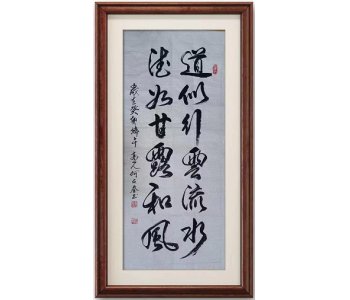 道似行雲流水
德如甘露和風
歲在癸卯端午